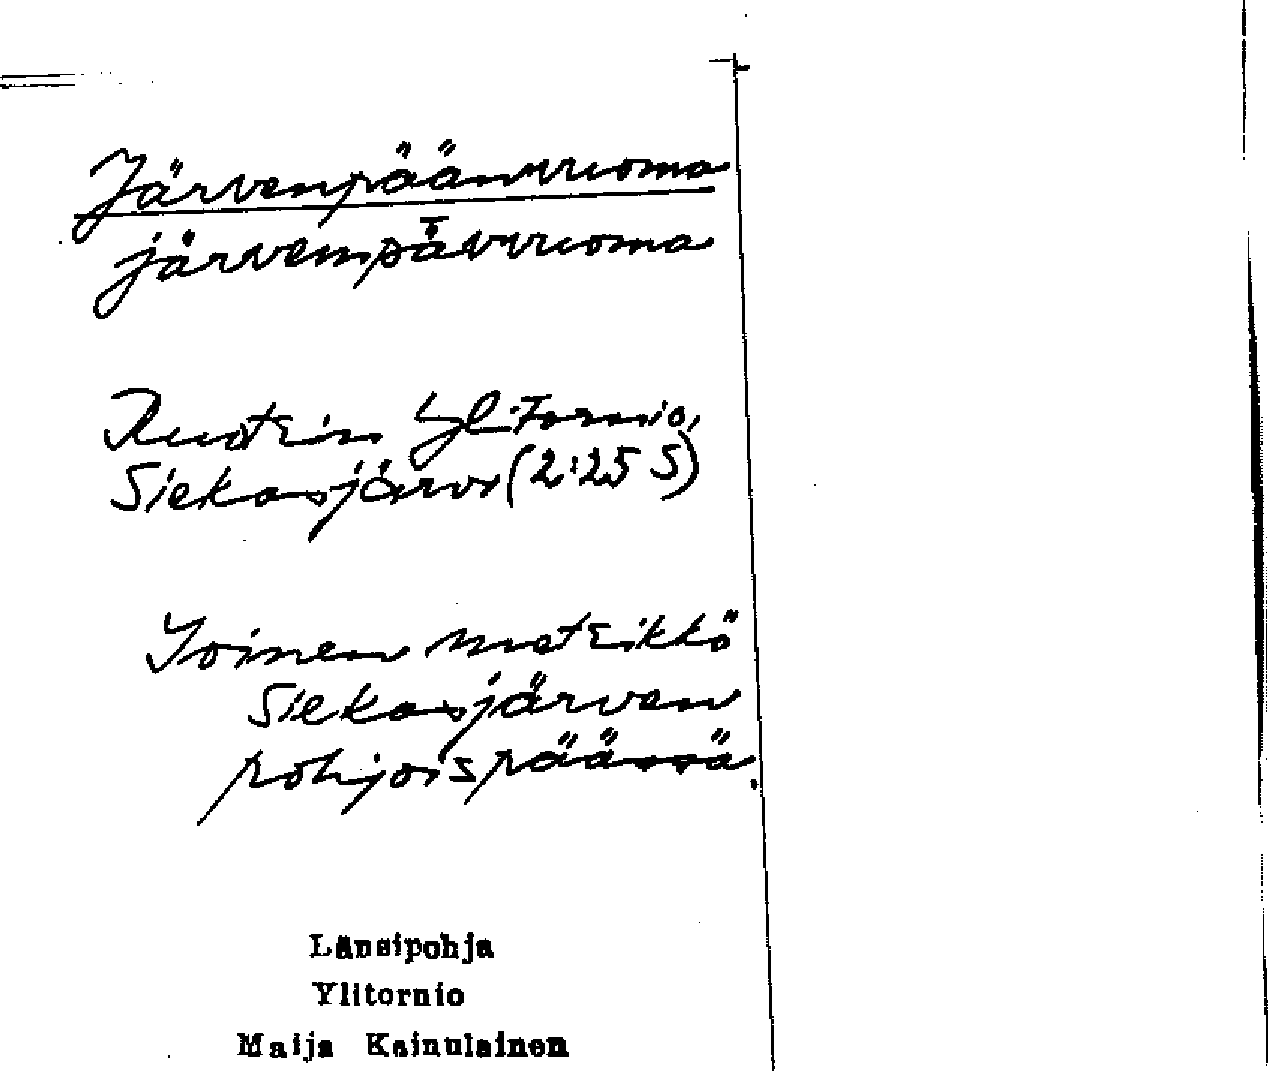 Järvenpäänvuoma
järvempǟvvuoma
Ruotsin Ylitornio,
Siekasjärvi (2:25 S)
Soinen metsikkö
Siekasjärven
pohjoispäässä.
Länsipohja
Ylitornio
Maija Kainulainen